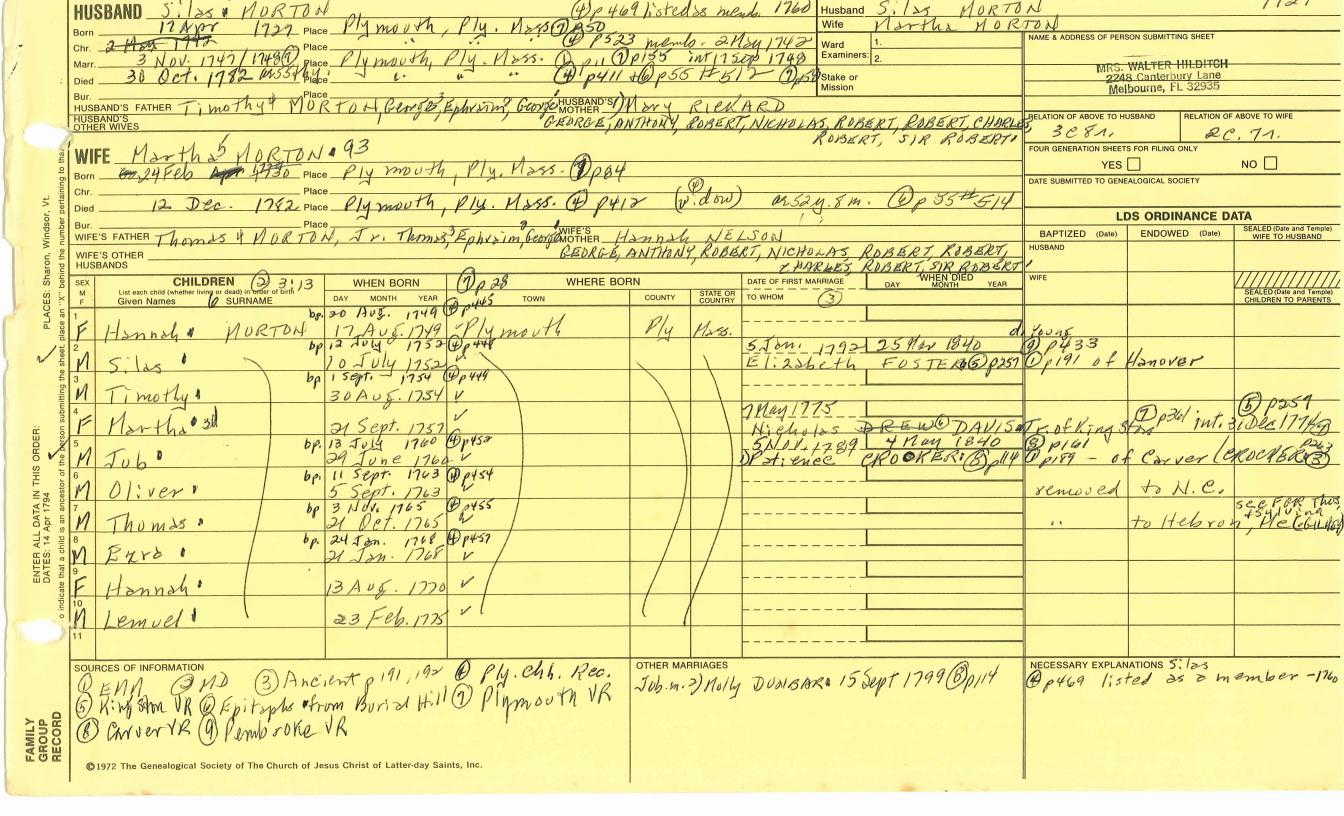 HUSBAND Silas MORTON ④ p469 listed as memb. 1760
Husband Silas MORTON
Wife Martha MORTON
Born 17 Apr 1727 Place Plymouth, Ply. Mass ⑦ p50
Chr. 2 May 1742 Place " " " ④ p523 memb. 2 May 1742
Marr. 3 Nov. 1747/1748 ⑦ Place Plymouth, Ply. Mass. ① p11 ⑦ p155 int 17 Sep 1748
Died 30 Oct. 1782 Place " " " ④ p411 ⑥ p55 #512
Bur. Place
Ward Examiners: 1.
2.
Stake or Mission
NAME & ADDRESS OF PERSON SUBMITTING SHEET
MRS. WALTER HILDITCH
2248 Canterbury Lane
Melbourne, FL 32935
HUSBAND'S FATHER Timothy⁴ MORTON, George³, Ephraim², George¹ HUSBAND'S MOTHER 1) Mary RICKARD
HUSBAND'S OTHER WIVES
GEORGE, ANTHONY, ROBERT, NICHOLAS, ROBERT, ROBERT, CHARLES,
ROBERT, SIR ROBERT
RELATION OF ABOVE TO HUSBAND 3C 8r.
RELATION OF ABOVE TO WIFE 2C. 7r.
FOUR GENERATION SHEETS FOR FILING ONLY
YES NO
DATE SUBMITTED TO GENEALOGICAL SOCIETY
WIFE Martha⁵ MORTON 93
Born 24 Feb Apr 1730 Place Plymouth, Ply. Mass. p84
Chr. Place
Died 12 Dec. 1782 Place Plymouth, Ply. Mass. ④ p412 (widow) ④ 52y. 8m. ⑥ p55 #514
Bur. Place
WIFE'S FATHER Thomas⁴ MORTON, Jr. Thomas³, Ephraim², George¹ WIFE'S MOTHER Hannah NELSON
WIFE'S OTHER HUSBANDS
GEORGE, ANTHONY, ROBERT, NICHOLAS, ROBERT, ROBERT,
CHARLES, ROBERT, SIR ROBERT
LDS ORDINANCE DATA
BAPTIZED (Date) ENDOWED (Date) SEALED (Date and Temple) WIFE TO HUSBAND
HUSBAND
WIFE
SEALED (Date and Temple) CHILDREN TO PARENTS
SEX M F
CHILDREN ② 3:13
List each child (whether living or dead) in order of birth
Given Names 6 SURNAME
WHEN BORN DAY MONTH YEAR
⑦ p28 WHERE BORN TOWN COUNTY STATE OR COUNTRY
DATE OF FIRST MARRIAGE TO WHOM ③
WHEN DIED DAY MONTH YEAR
1 bp. 20 Aug. 1749 ④ p445
F Hannah MORTON 17 Aug. 1749 Plymouth Ply Mass. d. Young
2 bp. 12 July 1752 ④ p448 5 Jan. 1792 25 Mar 1840 ⑨ p433
M Silas 10 July 1752 Elizabeth FOSTER ⑤ p257 ① p191 of Hanover
3 bp 1 Sept. 1754 ④ p449
M Timothy 30 Aug. 1754
4 7 May 1775 ⑤ p259
F Martha 3d 21 Sept. 1757 Nicholas DREW DAVIS Jr. of Kingston ⑦ p361 int. 31 Dec 1774
5 bp. 13 July 1760 ④ p452 5 Nov. 1789 4 May 1840 ⑧ p161
M Job 29 June 1760 1) Patience CROOKER ⑤ p114 ① p189 - of Carver (CROCKER ③
6 bp 11 Sept. 1763 ④ p454
M Oliver 5 Sept. 1763 removed to N.C.
7 bp 3 Nov. 1765 ④ p455 see FGR Thos.
M Thomas 21 Oct. 1765 " to Hebron, Me
8 bp. 24 Jan 1768 ④ p457
M Ezra 21 Jan. 1768
9
F Hannah 13 Aug. 1770
10
M Lemuel 23 Feb. 1775
11
SOURCES OF INFORMATION
① EMM ② MD ③ Ancient p191, 192 ④ Ply. Chh. Rec.
⑤ Kingston VR ⑥ Epitaphs from Burial Hill ⑦ Plymouth VR
⑧ Carver VR ⑨ Pembroke VR
OTHER MARRIAGES
Job m. 2) Molly DUNBAR 15 Sept 1799 ⑧ p114
NECESSARY EXPLANATIONS Silas
④ p469 listed as a member - 1760
©1972 The Genealogical Society of The Church of Jesus Christ of Latter-day Saints, Inc.
FAMILY GROUP RECORD
ENTER ALL DATA IN THIS ORDER:
DATES: 14 Apr 1794
PLACES: Sharon, Windsor, Vt.
o indicate that a child is an ancestor of the person submitting the sheet, place an "X" behind the number pertaining to tha